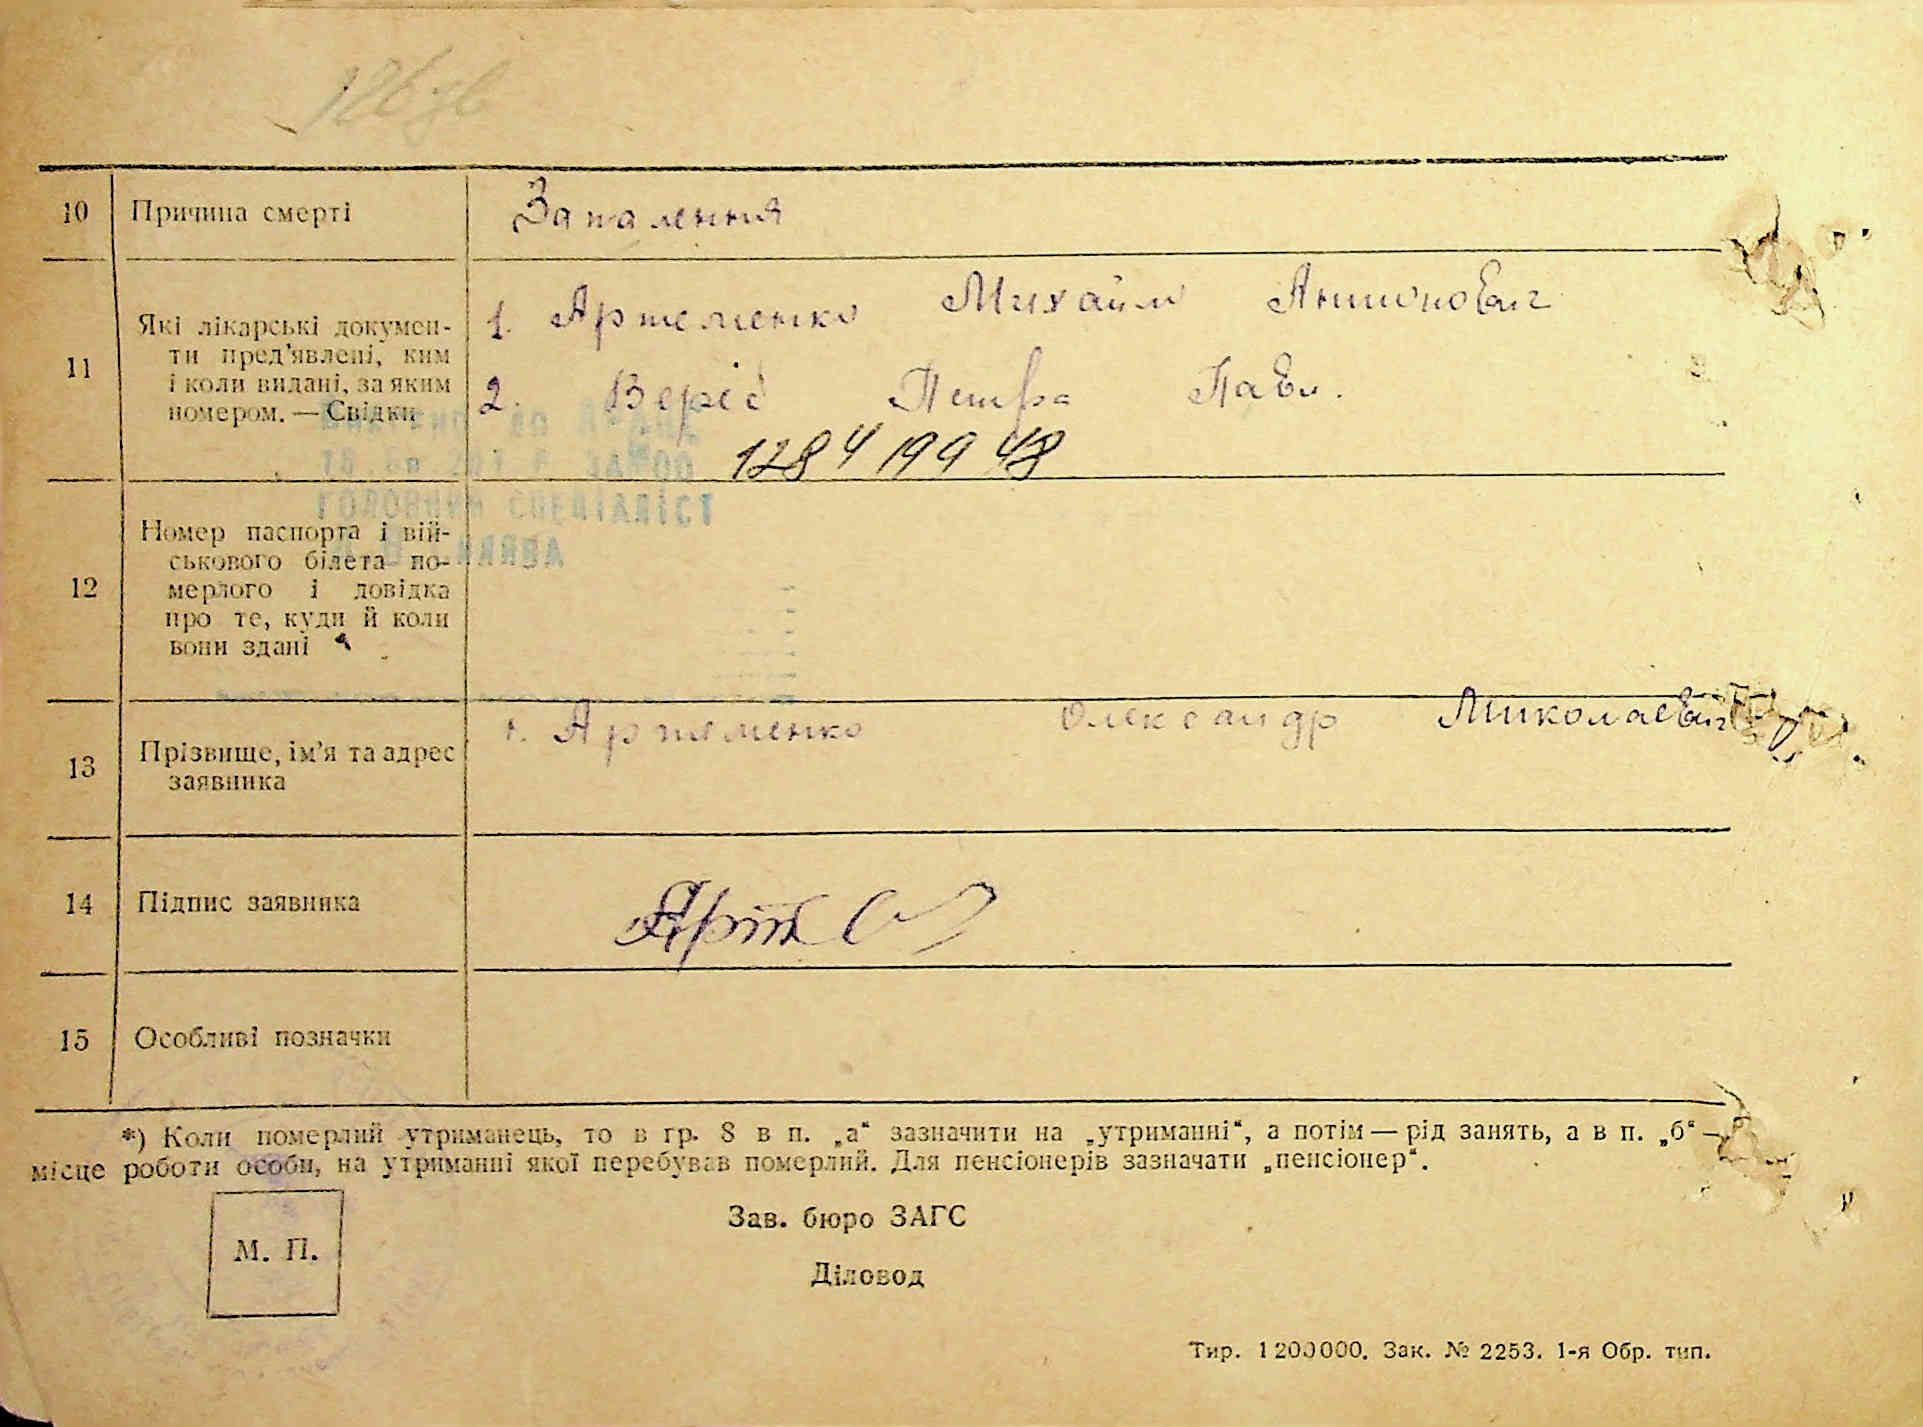 10 Причина смерті Запалення
11 Які лікарські докумен-
ти пред'явлені, ким
і коли видані, за яким
номером. — Свідки
1. Артеменко Михайло Антонович
2. Петра Павл.
1284 199 48
12 Номер паспорта і вій-
ськового білета по-
мерлого і довідка
про те, куди й коли
вони здані
ГОЛОВНИЙ СПЕЦІАЛІСТ
13 Прізвище, ім'я та адрес
заявника
1. Артеменко Олександр Миколаевич
14 Підпис заявника
15 Особливі позначки
*) Коли померлий утриманець, то в гр. 8 в п. „а“ зазначити на „утриманні“, а потім — рід занять, а в п. „б“ —
місце роботи особи, на утриманні якої перебував померлий. Для пенсіонерів зазначати „пенсіонер“.
М. П.
Зав. бюро ЗАГС
Діловод
Тир. 1200000. Зак. № 2253. 1-я Обр. тип.